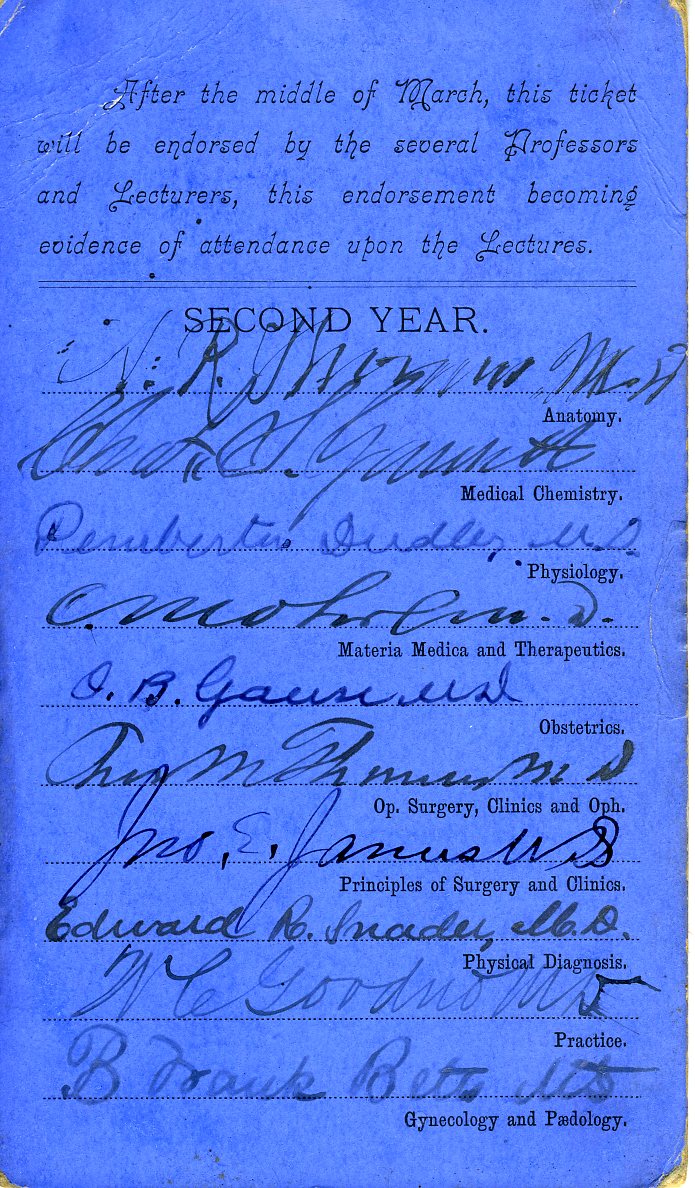 After the middle of March, this ticket
will be endorsed by the several Professors
and Lecturers, this endorsement becoming
evidence of attendance upon the Lectures.
SECOND YEAR.
N. R.
Anatomy.
Medical Chemistry.
Pemberton Dudley M.D.
Physiology.
C. Mohr M.D.
Materia Medica and Therapeutics.
O. B. Gause M.D.
Obstetrics.
M Thomas M D
Op. Surgery, Clinics and Oph.
Jno. E. James M.D.
Principles of Surgery and Clinics.
Edward R. Snader, M.D.
Physical Diagnosis.
W C Goodno MD
Practice.
B Frank Betts MD
Gynecology and Pædology.